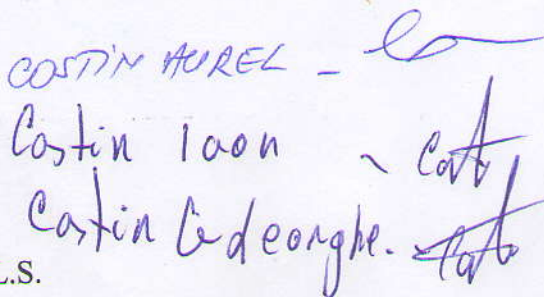 COSTIN AUREL -
Costin Ioan -
Costin Gheorghe.
L.S.